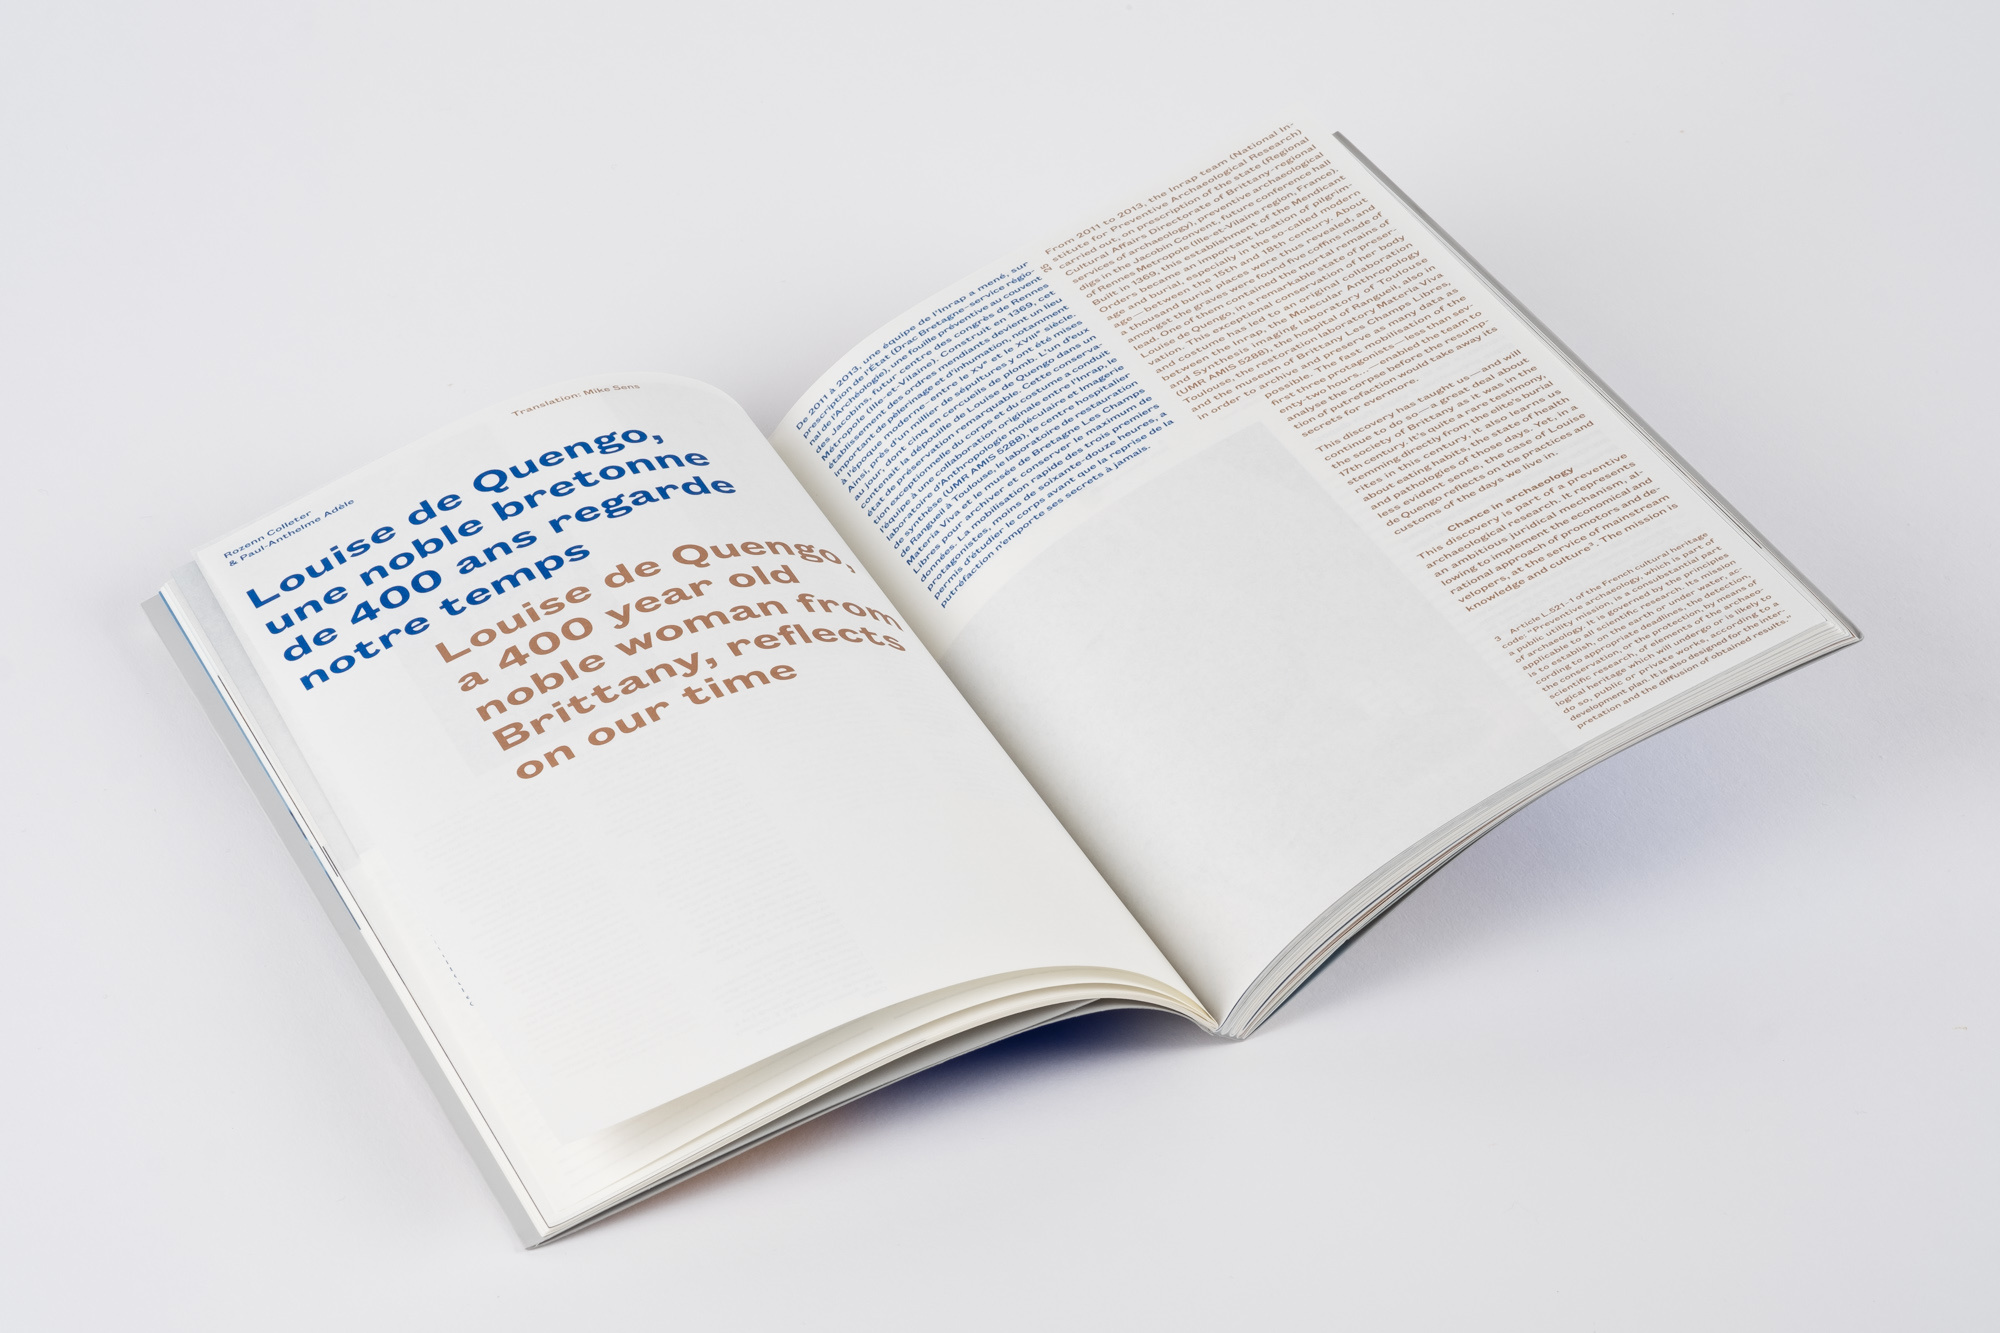 Rozenn Colleter
& Paul-Anthelme Adèle
Translation: Mike Sens
Louise de Quengo,
une noble bretonne
de 400 ans regarde
notre temps
Louise de Quengo,
a 400 year old
noble woman from
Brittany, reflects
on our time
De 2011 à 2013, une équipe de l'Inrap a mené, sur
prescription de l'État (Drac Bretagne–service régio-
nal de l'Archéologie), une fouille préventive au couvent
des Jacobins, futur centre des congrès de Rennes
Métropole (Ille-et-Vilaine). Construit en 1369, cet
établissement des ordres mendiants devient un lieu
important de pèlerinage et d'inhumation, notamment
à l'époque moderne–entre le XVe et le XVIIIe siècle.
Ainsi, près d'un millier de sépultures y ont été mises
au jour, dont cinq en cercueils de plomb. L'un d'eux
contenait la dépouille de Louise de Quengo dans un
état de préservation remarquable. Cette conserva-
tion exceptionnelle du corps et du costume a conduit
l'équipe à une collaboration originale entre l'Inrap, le
laboratoire d'Anthropologie moléculaire et Imagerie
de synthèse (UMR AMIS 5288), le centre hospitalier
de Rangueil à Toulouse, le laboratoire de restauration
Materia Viva et le musée de Bretagne Les Champs
Libres pour archiver et conserver le maximum de
données. La mobilisation rapide des trois premiers
protagonistes, moins de soixante-douze heures, a
permis d'étudier le corps avant que la reprise de la
putréfaction n'emporte ses secrets à jamais.
From 2011 to 2013, the Inrap team (National In-
stitute for Preventive Archaeological Research)
carried out, on prescription of the state (Regional
Cultural Affairs Directorate of Brittany–regional
services of archaeology), preventive archaeological
digs in the Jacobin Convent, future conference hall
of Rennes Metropole (Ille-et-Vilaine region, France).
Built in 1369, this establishment of the Mendicant
Orders became an important location of pilgrim-
age and burial, especially in the so-called modern
age—between the 15th and 18th century. About
a thousand burial places were thus revealed, and
amongst the graves were found five coffins made of
lead. One of them contained the mortal remains of
Louise de Quengo, in a remarkable state of preser-
vation. This exceptional conservation of her body
and costume has led to an original collaboration
between the Inrap, the Molecular Anthropology
and Synthesis Imaging laboratory of Toulouse
(UMR AMIS 5288), the hospital of Rangueil, also in
Toulouse, the restoration laboratory Materia Viva
and the museum of Brittany Les Champs Libres,
in order to archive and preserve as many data as
possible. The fast mobilisation of the
first three protagonists—less than sev-
enty-two hours—enabled the team to
analyse the corpse before the resump-
tion of putrefaction would take away its
secrets for evermore.
This discovery has taught us—and will
continue to do so—a great deal about
the society of Brittany as it was in the
17th century. It's quite a rare testimony,
stemming directly from the elite's burial
rites in this century, it also learns us
about eating habits, the state of health
and pathologies of those days. Yet, in a
less evident sense, the case of Louise
de Quengo reflects on the practices and
customs of the days we live in.
Chance in archaeology
This discovery is part of a preventive
archaeological research. It represents
an ambitious juridical mechanism, al-
lowing to implement the economic and
rational approach of promotors and de-
velopers, at the service of mainstream
knowledge and culture3. The mission is
3 Article L.521-1 of the French cultural heritage
code: "Preventive archaeology, which is part of
a public utility mission, is a consubstantial part
of archaeology. It is governed by the principles
applicable to all scientific research. Its mission
is to establish, on the earth or under water, ac-
cording to appropriate deadlines, the detection,
the conservation, or the protection, by means of
scientific research, of elements of the archaeo-
logical heritage which will undergo or is likely to
do so, public or private works, according to a
development plan. It is also designed for the inter-
pretation and the diffusion of obtained results."